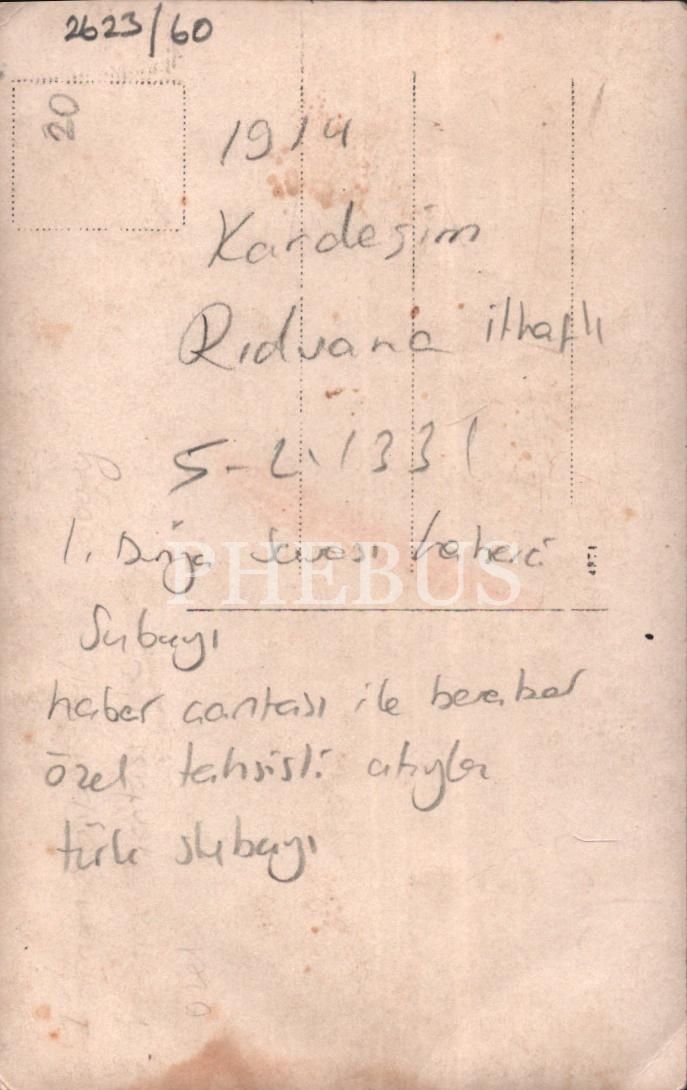 2623/60
20
1914
Kardeşim
Rıdvana ithaflı
5-2-1331
1. Dünya Savaşı haberci
Subayı
haber çantası ile beraber
özel tahsisli atıyla
türk subayı
4974
PHEBUS